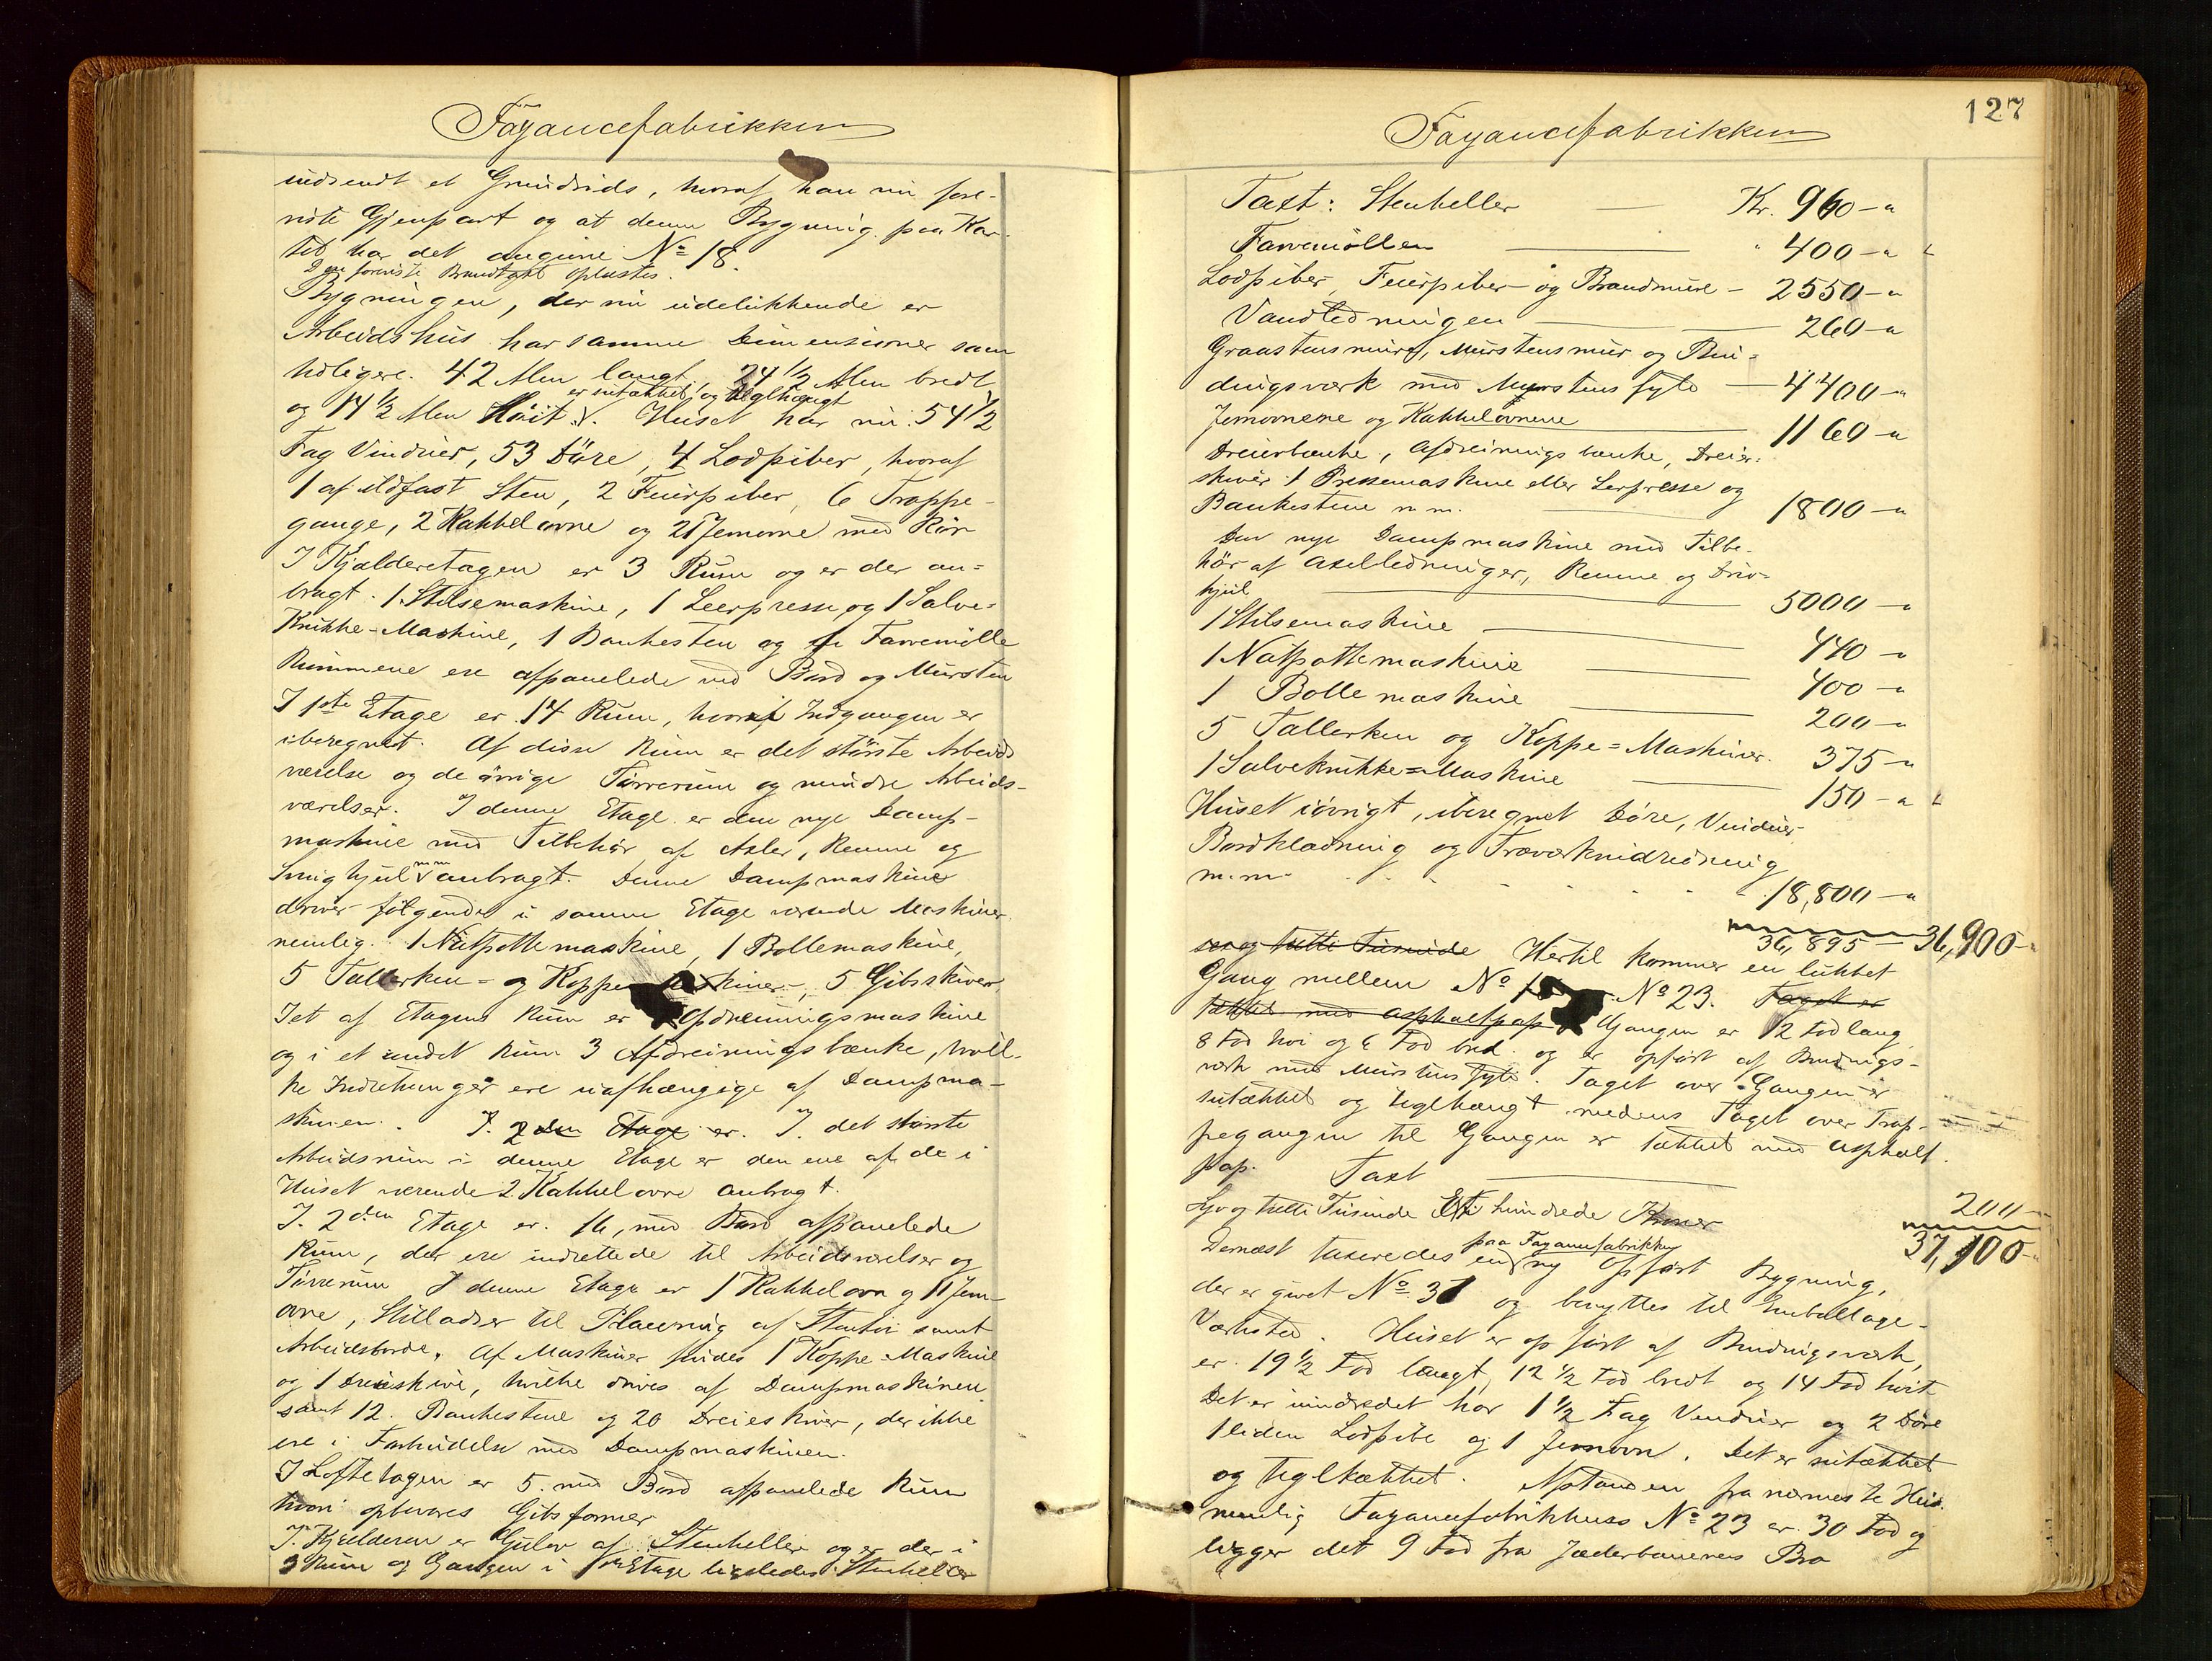 Fayancefabrikken
indsendt et Grundrids, hvoraf han nu fore-
viste Gjenpart og at denne Bygning paa Kar-
tet har det angivne No 18.
Den foreviste Brandtaxt oplæstes.
Bygningen, der nu udelukkende er
Arbeidshus har samme Dimensioner som
tidligere. 42 Alen langt, 24 1/2 Alen bredt
er sutækket og teglhængt
og 14 1/2 Alen høit. Huset har nu 54 1/2
Fag Vinduer, 53 Døre, 4 Lodpiber, hvoraf
1 af ildfast Sten, 2 Feierpiber, 6 Trappe-
gange, 2 Kakkelovne og 21 Jernovne med Rør
I Kjælderetagen er 3 Rum og er der an-
bragt 1 Stilsemaskine, 1 Leerpresse, og 1 Salve-
Krukke-Maskine, 1 Bankesten og Farvemølle
Rummene ere afpanelede med Bord og Mursten
I 1ste Etage er 14 Rum, hvoraf Indgangen er
iberegnet. Af disse Rum er det største Arbeids
værelse og de øvrige Tørrerum og mindre Arbeids-
værelser. I denne Etage er den nye Damp-
maskine med Tilbehør af Axler, Remme og
Svinghjul mm anbragt. Denne Dampmaskine
driver følgende i samme Etage værende Maskiner
nemlig. 1 Natpottemaskine, 1 Bollemaskine,
5 Tallerken- og Koppemaskiner, 5 Gibsskiver
I et af Etagens Rum er Afdreiningsmaskine
og i et andet Rum 3 Afdreiningsbænke, hvil-
ke Indretninger ere uafhængige af Dampma-
skinen. I 2den Etage er. I det største
Arbeidsrum i denne Etage er den ene af de i
Huset værende 2 Kakkelovne anbragt.
I 2den Etage er 16, med Bord afpanelede
Rum, der ere indrettede til Arbeidsværelser og
Tørrerum I denne Etage er 1 Kakkelovn og 11 Jern-
ovne, Stilladser til Placering af Stentøi samt
Arbeidsborde. Af Maskiner findes 1 Koppe-Maskine
og 1 Dreieskive, hvilke drives af Dampmaskinen
samt 12 Bankestene og 20 Dreieskiver, der ikke
ere i Forbindelse med Dampmaskinen.
I Loftetagen er 5. med Bord afpanelede Rum
hvori opbevares Gibsformer
I Kjælderen er Gulve af Stenheller og er der i
3 Rum og Gangen i 1ste Etage ligeledes Stenheller
127
Fayancefabrikken
Taxt: Stenheller Kr. 960-"
Farvemøllen " 400-"
Lodpiber, Feierpiber og Brandmure - 2550-"
Vandledningen 260-"
Graastensmure, Murstensmur og Bin-
dingsværk med Murstens fyld 4400-"
Jernovnene og Kakkelovnene 1160-"
Dreierbænke, Afdreiningsbænke, Dreier-
skiver 1 Pressemaskine eller Lerpresse og
Bankestene m m. 1800-"
Den nye Dampmaskine med Tilbe-
hør af Axelledninger, Remme og Driv-
hjul 5000-"
1 Stilsemaskine 440-"
1 Natpottemaskine 400-"
1 Bollemaskine 200-"
5 Tallerken og Koppe-Maskiner 375-"
1 Salvekrukke-Maskine 150-"
Huset iøvrigt, iberegnet Døre, Vinduer
Bordklædning og Træværkindredning
m.m. 18,800-"
36,895- 36,900-"
sex og tretti Tusinde Hertil kommer en lukket
Gang mellem No 18 No 23. Taget er
tækket med Asphaltpap Gangen er 12 Fod lang
8 Fod høi og 6 Fod bred og er opført af Bindings-
værk med Murstens fyld. Taget over Gangen er
sutækket og teglhængt medens Taget over Trap-
pegangen til Gangen er tækket med Asphalt
pap. Taxt 200-
Syv og tretti Tusinde Et hundrede Kroner 37,100-"
paa Fayancefabrikken
Dernæst taxeredes en ny opført Bygning,
der er givet No 31 og benyttes til Emballage-
Værksted. Huset er opført af Bindingsværk,
er 19 1/2 Fod langt, 12 1/2 Fod bredt og 14 Fod høit
Det er uindredet har 1 1/2 Fag Vinduer og 2 Døre
1 liden Lodpibe og 1 Jernovn. Det er sutækket
og teglkækket. Afstanden fra nærmeste Hus.
nemlig Fayancefabrikhuus No 23 er 30 Fod og
ligger det 9 Fod fra Jæderbanens Bro